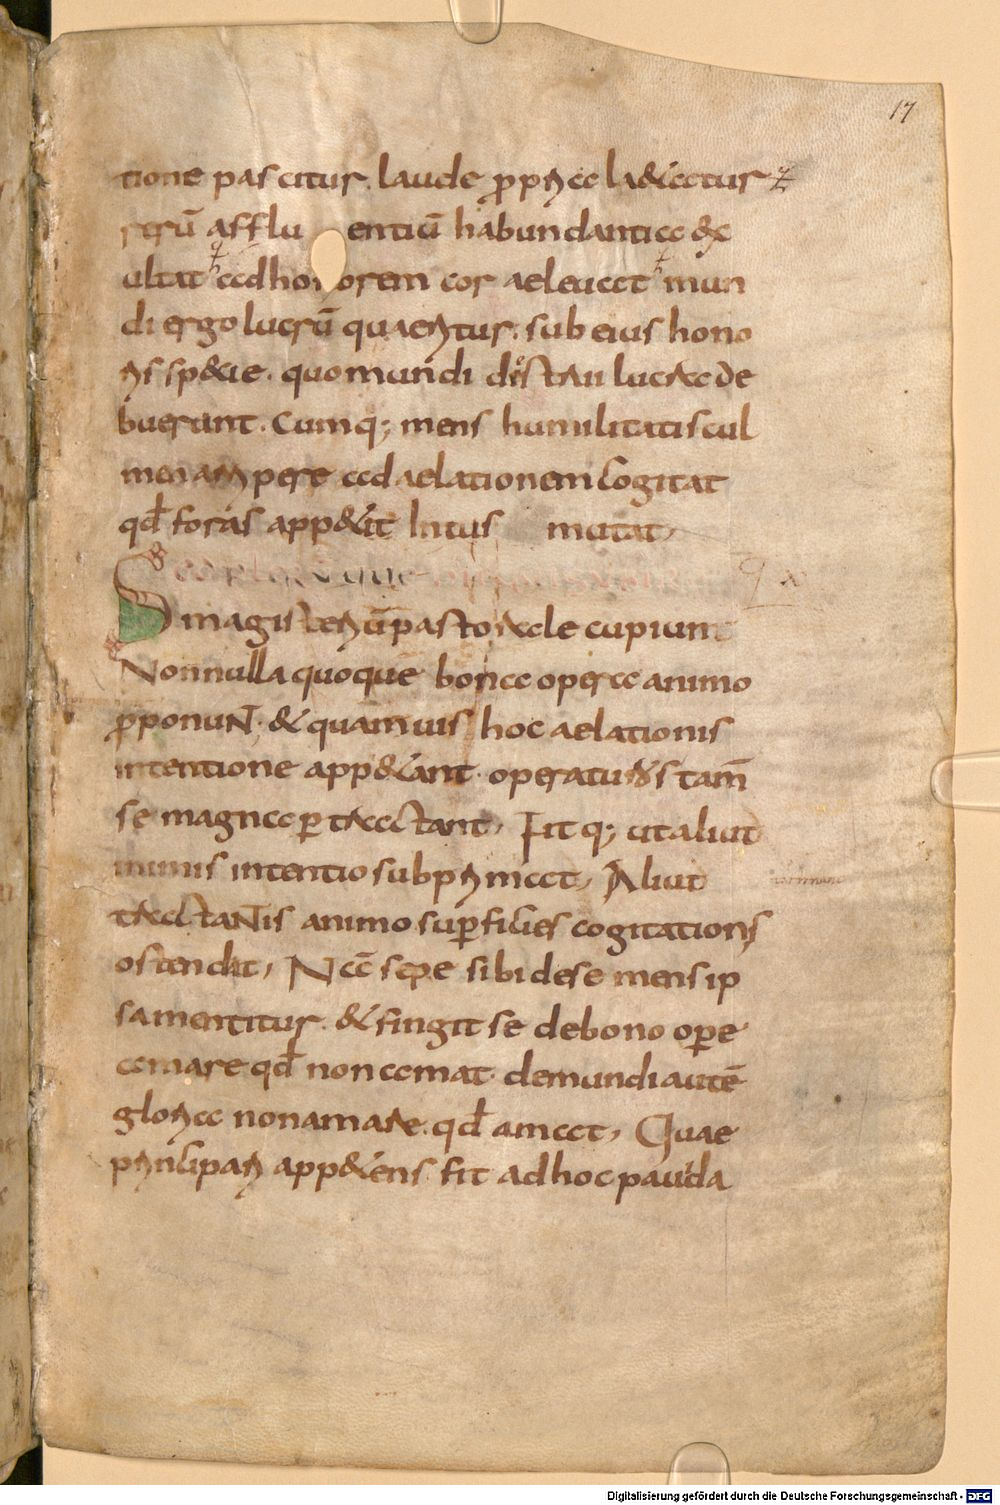 17
tione pascitur. laude ꝓpria laetatur
rerū afflu entiū habundantia ex
ultat ad honorem cor aeleuat mun
di ergo lucrū quaeritur. sub eius hono
ris specie. quo mundi distrui lucra de
buerant. Cumq; mens humilitatis cul
men arripere ad aelationem cogitat
qđ foras app&it Intus mutat,
magisteriū pastorale cupiunt
Nonnulla quoque bona opera animo
ꝓponunt. & quamuis hoc aelationis
intentione app&ant. operaturos tam̄
se magna ꝑtractant, Fit q; ut aliut
inimis intentio subprimat, Aliut
tractantis animo suꝑficies cogitationis
ostendit, Nā sepe sibi de se mens ip
sa mentitur. & fingit se de bono oꝑe
amare qđ non amat. de mundi autē
gloria non amare. qđ amat, Quae
principari app&ens fit ad hoc pauida
Digitalisierung gefördert durch die Deutsche Forschungsgemeinschaft - DFG